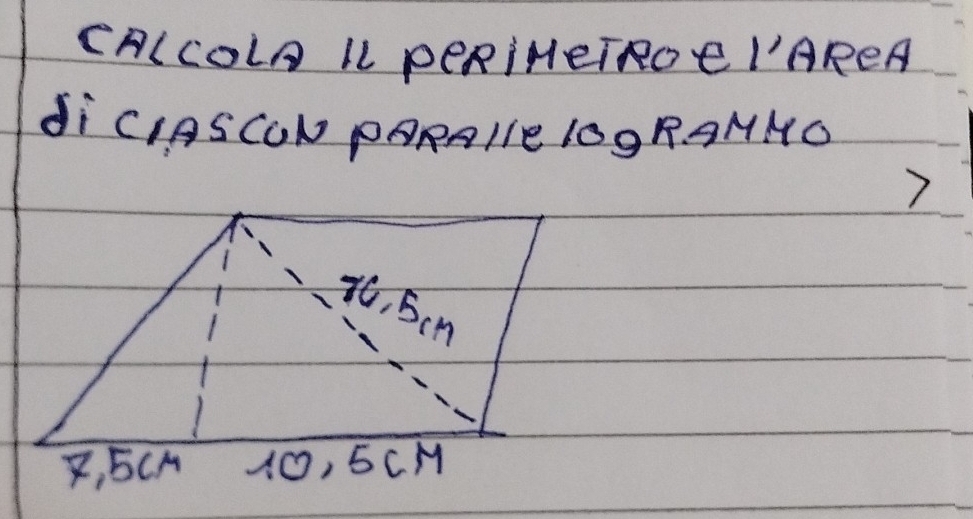 CALCOLA IL PERIMETRO E L'AREA
di CIASCUN PARALLELOGRAMMO
>
7,5CM 10,5CM